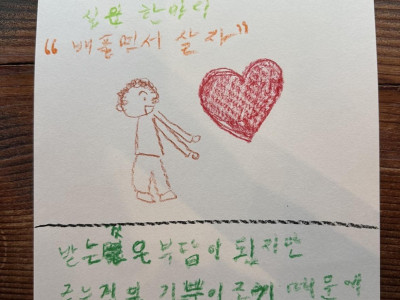 싶은 한마디
“배풀면서 살자”
받는 은 부담이 되지만
주는 기쁨이 크기 때문에